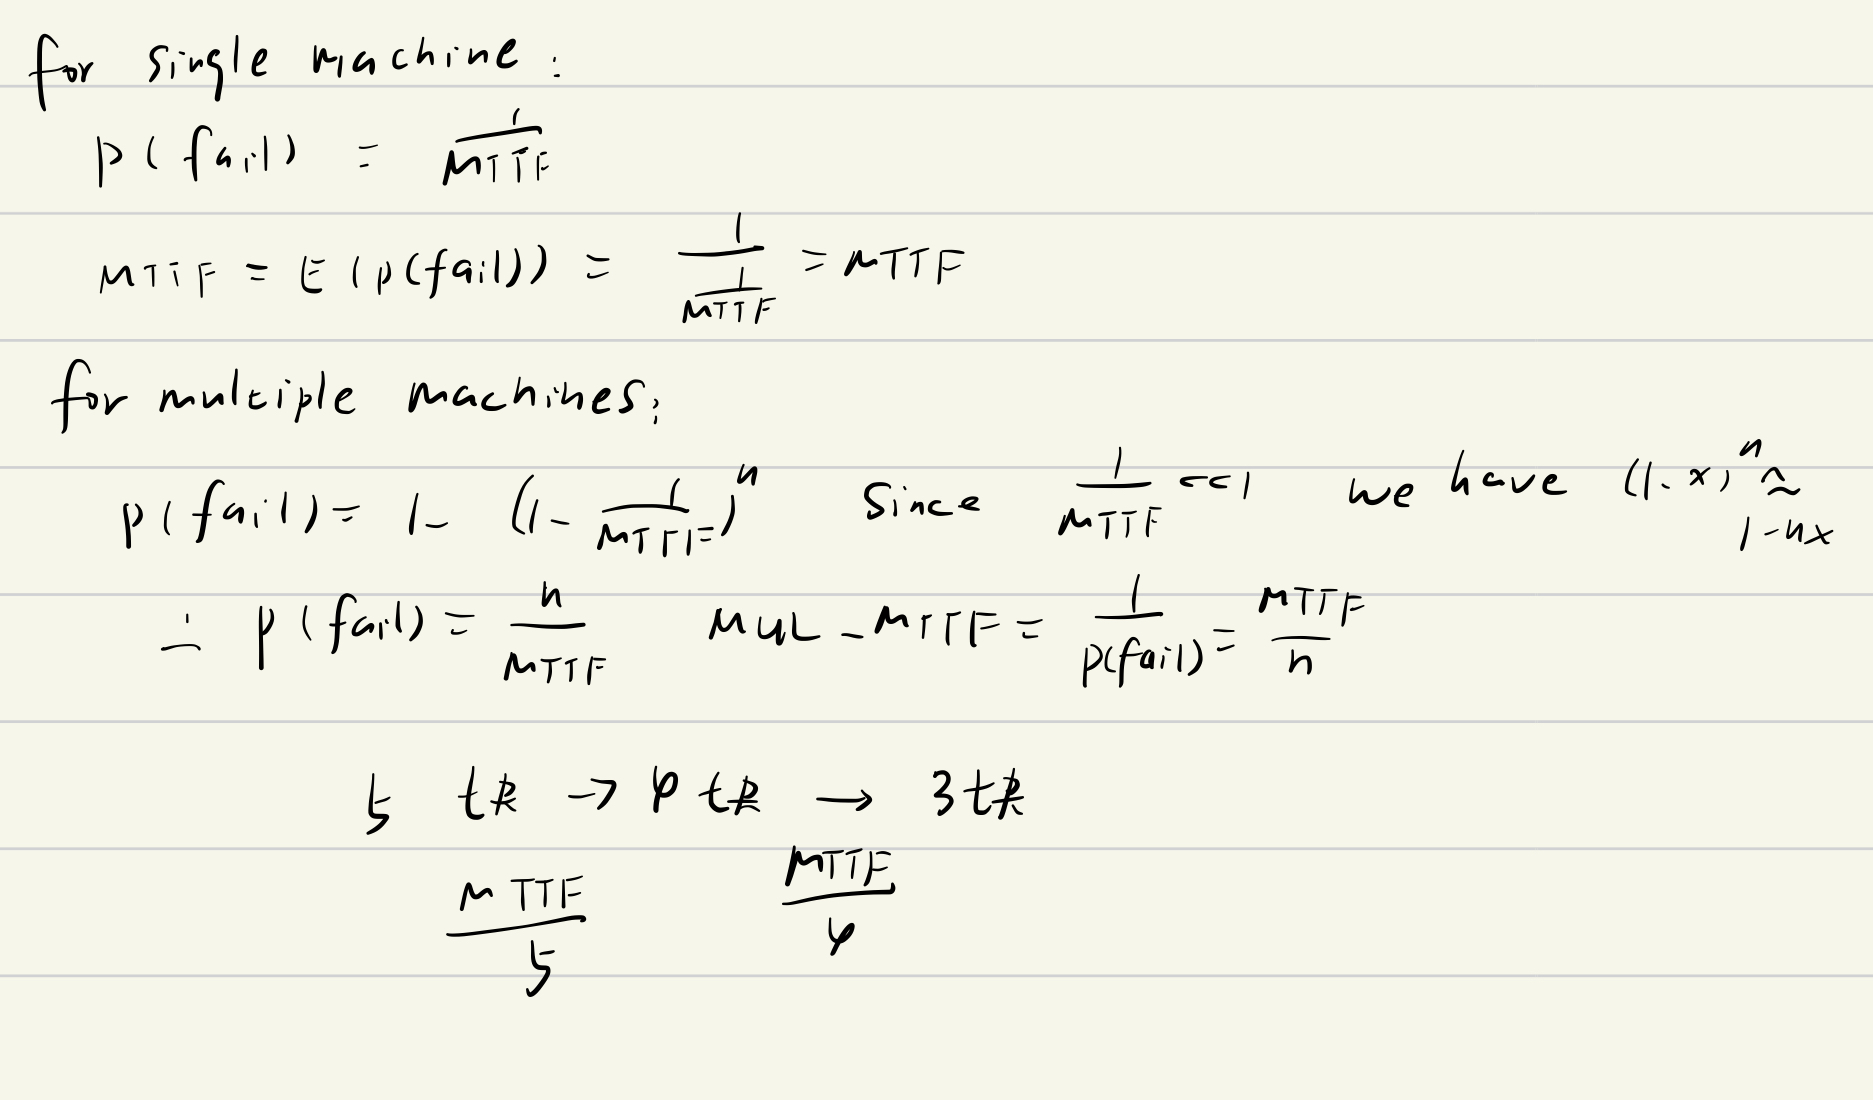 for single machine:
p(fail) = 1/MTTF
MTTF = E(p(fail)) = 1/(1/MTTF) = MTTF
for multiple machines:
p(fail) = 1 - (1 - 1/MTTF)^n Since 1/MTTF << 1 we have (1-x)^n ≈ 1-nx
∴ p(fail) = n/MTTF MUL_MTTF = 1/p(fail) = MTTF/n
5 → 4 → 3
MTTF/5 MTTF/4